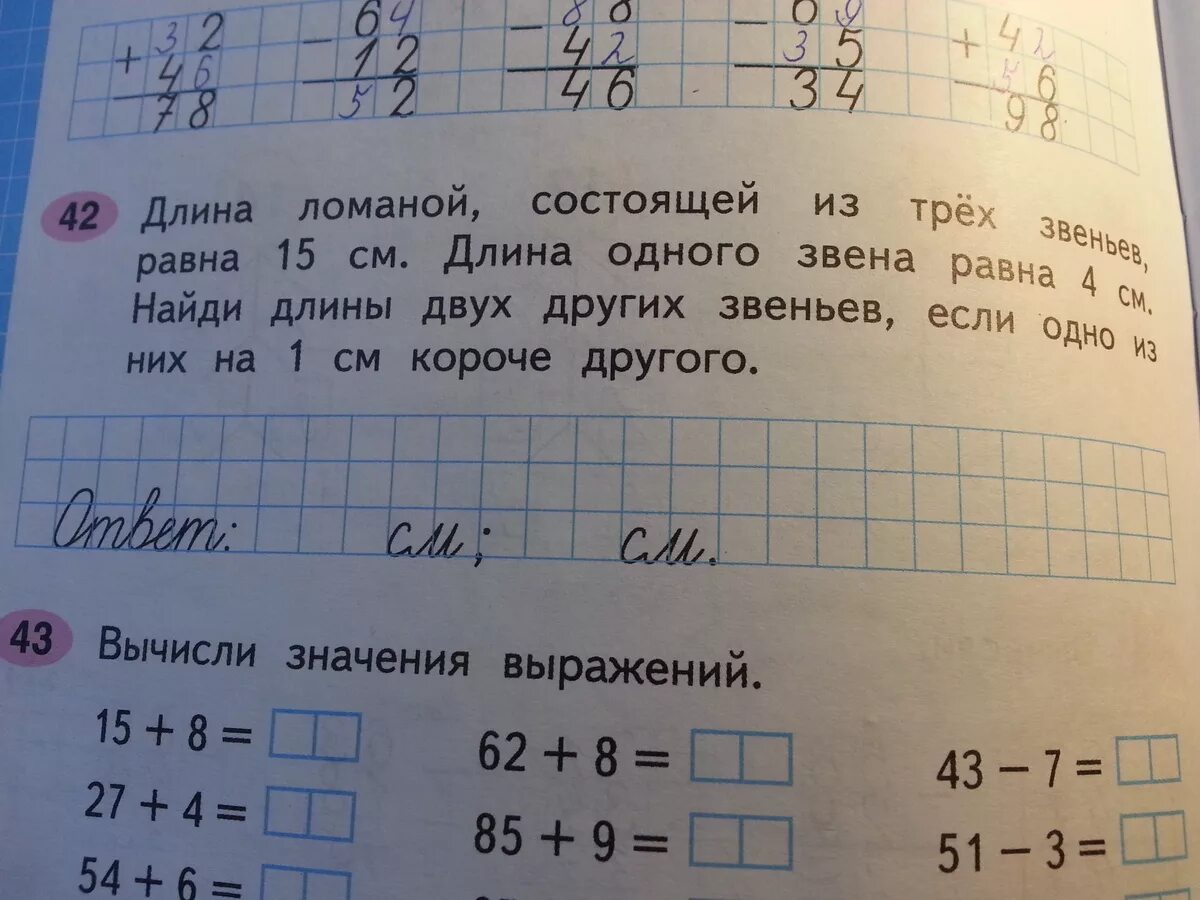 + 32 − 64 − 88 − 69 + 42
46 12 42 35 56
78 52 46 34 98
42 Длина ломаной, состоящей из трёх звеньев,
равна 15 см. Длина одного звена равна 4 см.
Найди длины двух других звеньев, если одно из
них на 1 см короче другого.
Ответ: см; см.
43 Вычисли значения выражений.
15 + 8 = 62 + 8 = 43 − 7 =
27 + 4 = 85 + 9 = 51 − 3 =
54 + 6 =